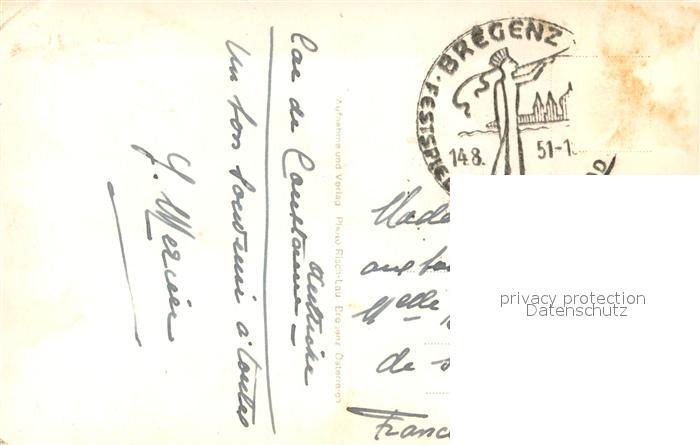 Lac de Constance
Autriche
Un bon souvenir à toutes
J. Mercier
Aufnahme und Verlag Photo Risch-Lau Bregenz Österreich
BREGENZ
FESTSPIE
14.8. 51-1
Made
aux
Melle
de
France
privacy protection
Datenschutz